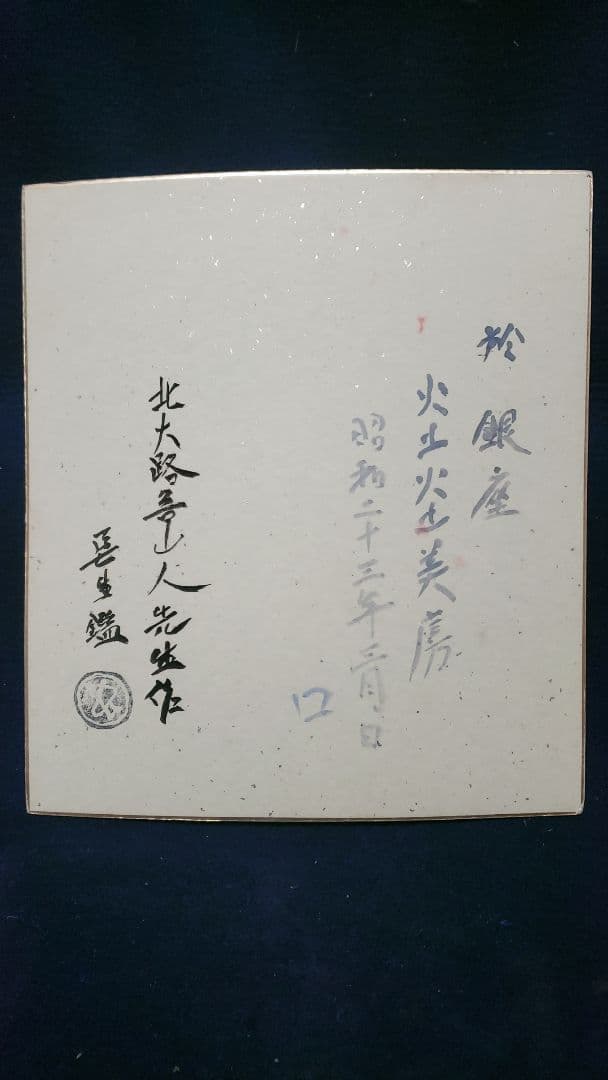 於銀座
火土火土美房
昭和二十三年三月日
口
北大路魯山人先生作
生鑑